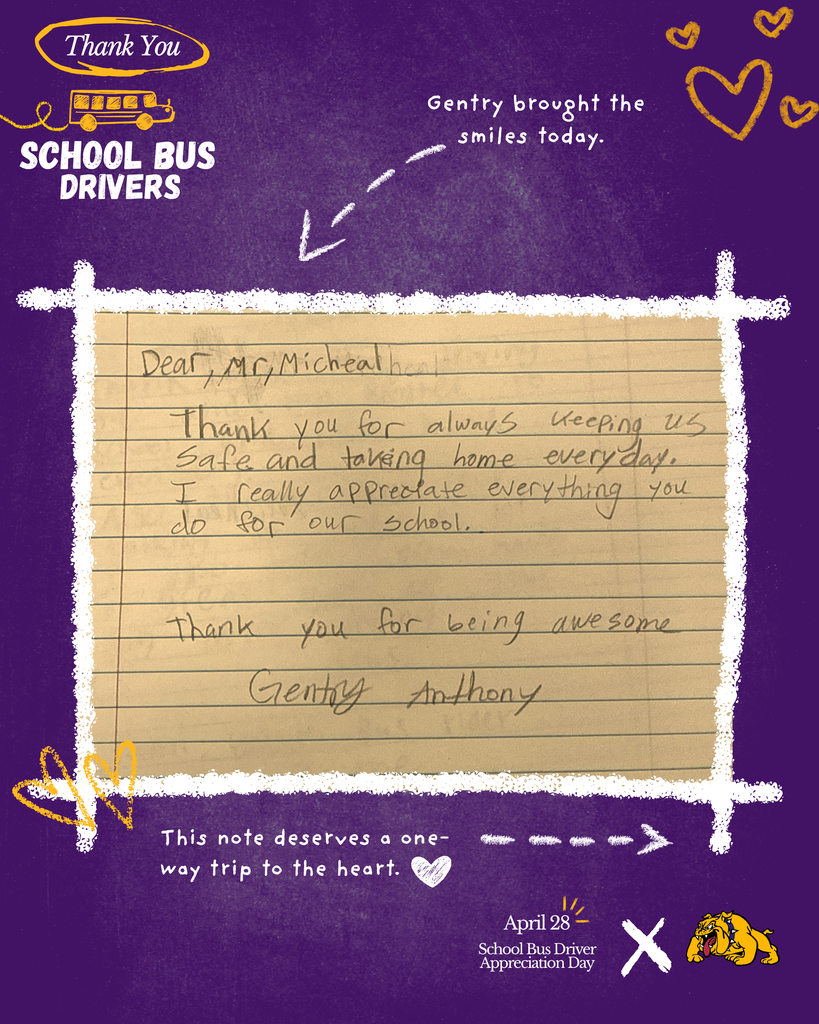 Thank You
SCHOOL BUS
DRIVERS
Gentry brought the
smiles today.
Dear, Mr, Micheal
Thank you for always keeping us
safe and taking home everyday.
I really appreciate everything you
do for our school.
Thank you for being awesome
Gentry Anthony
This note deserves a one-
way trip to the heart.
April 28
School Bus Driver
Appreciation Day